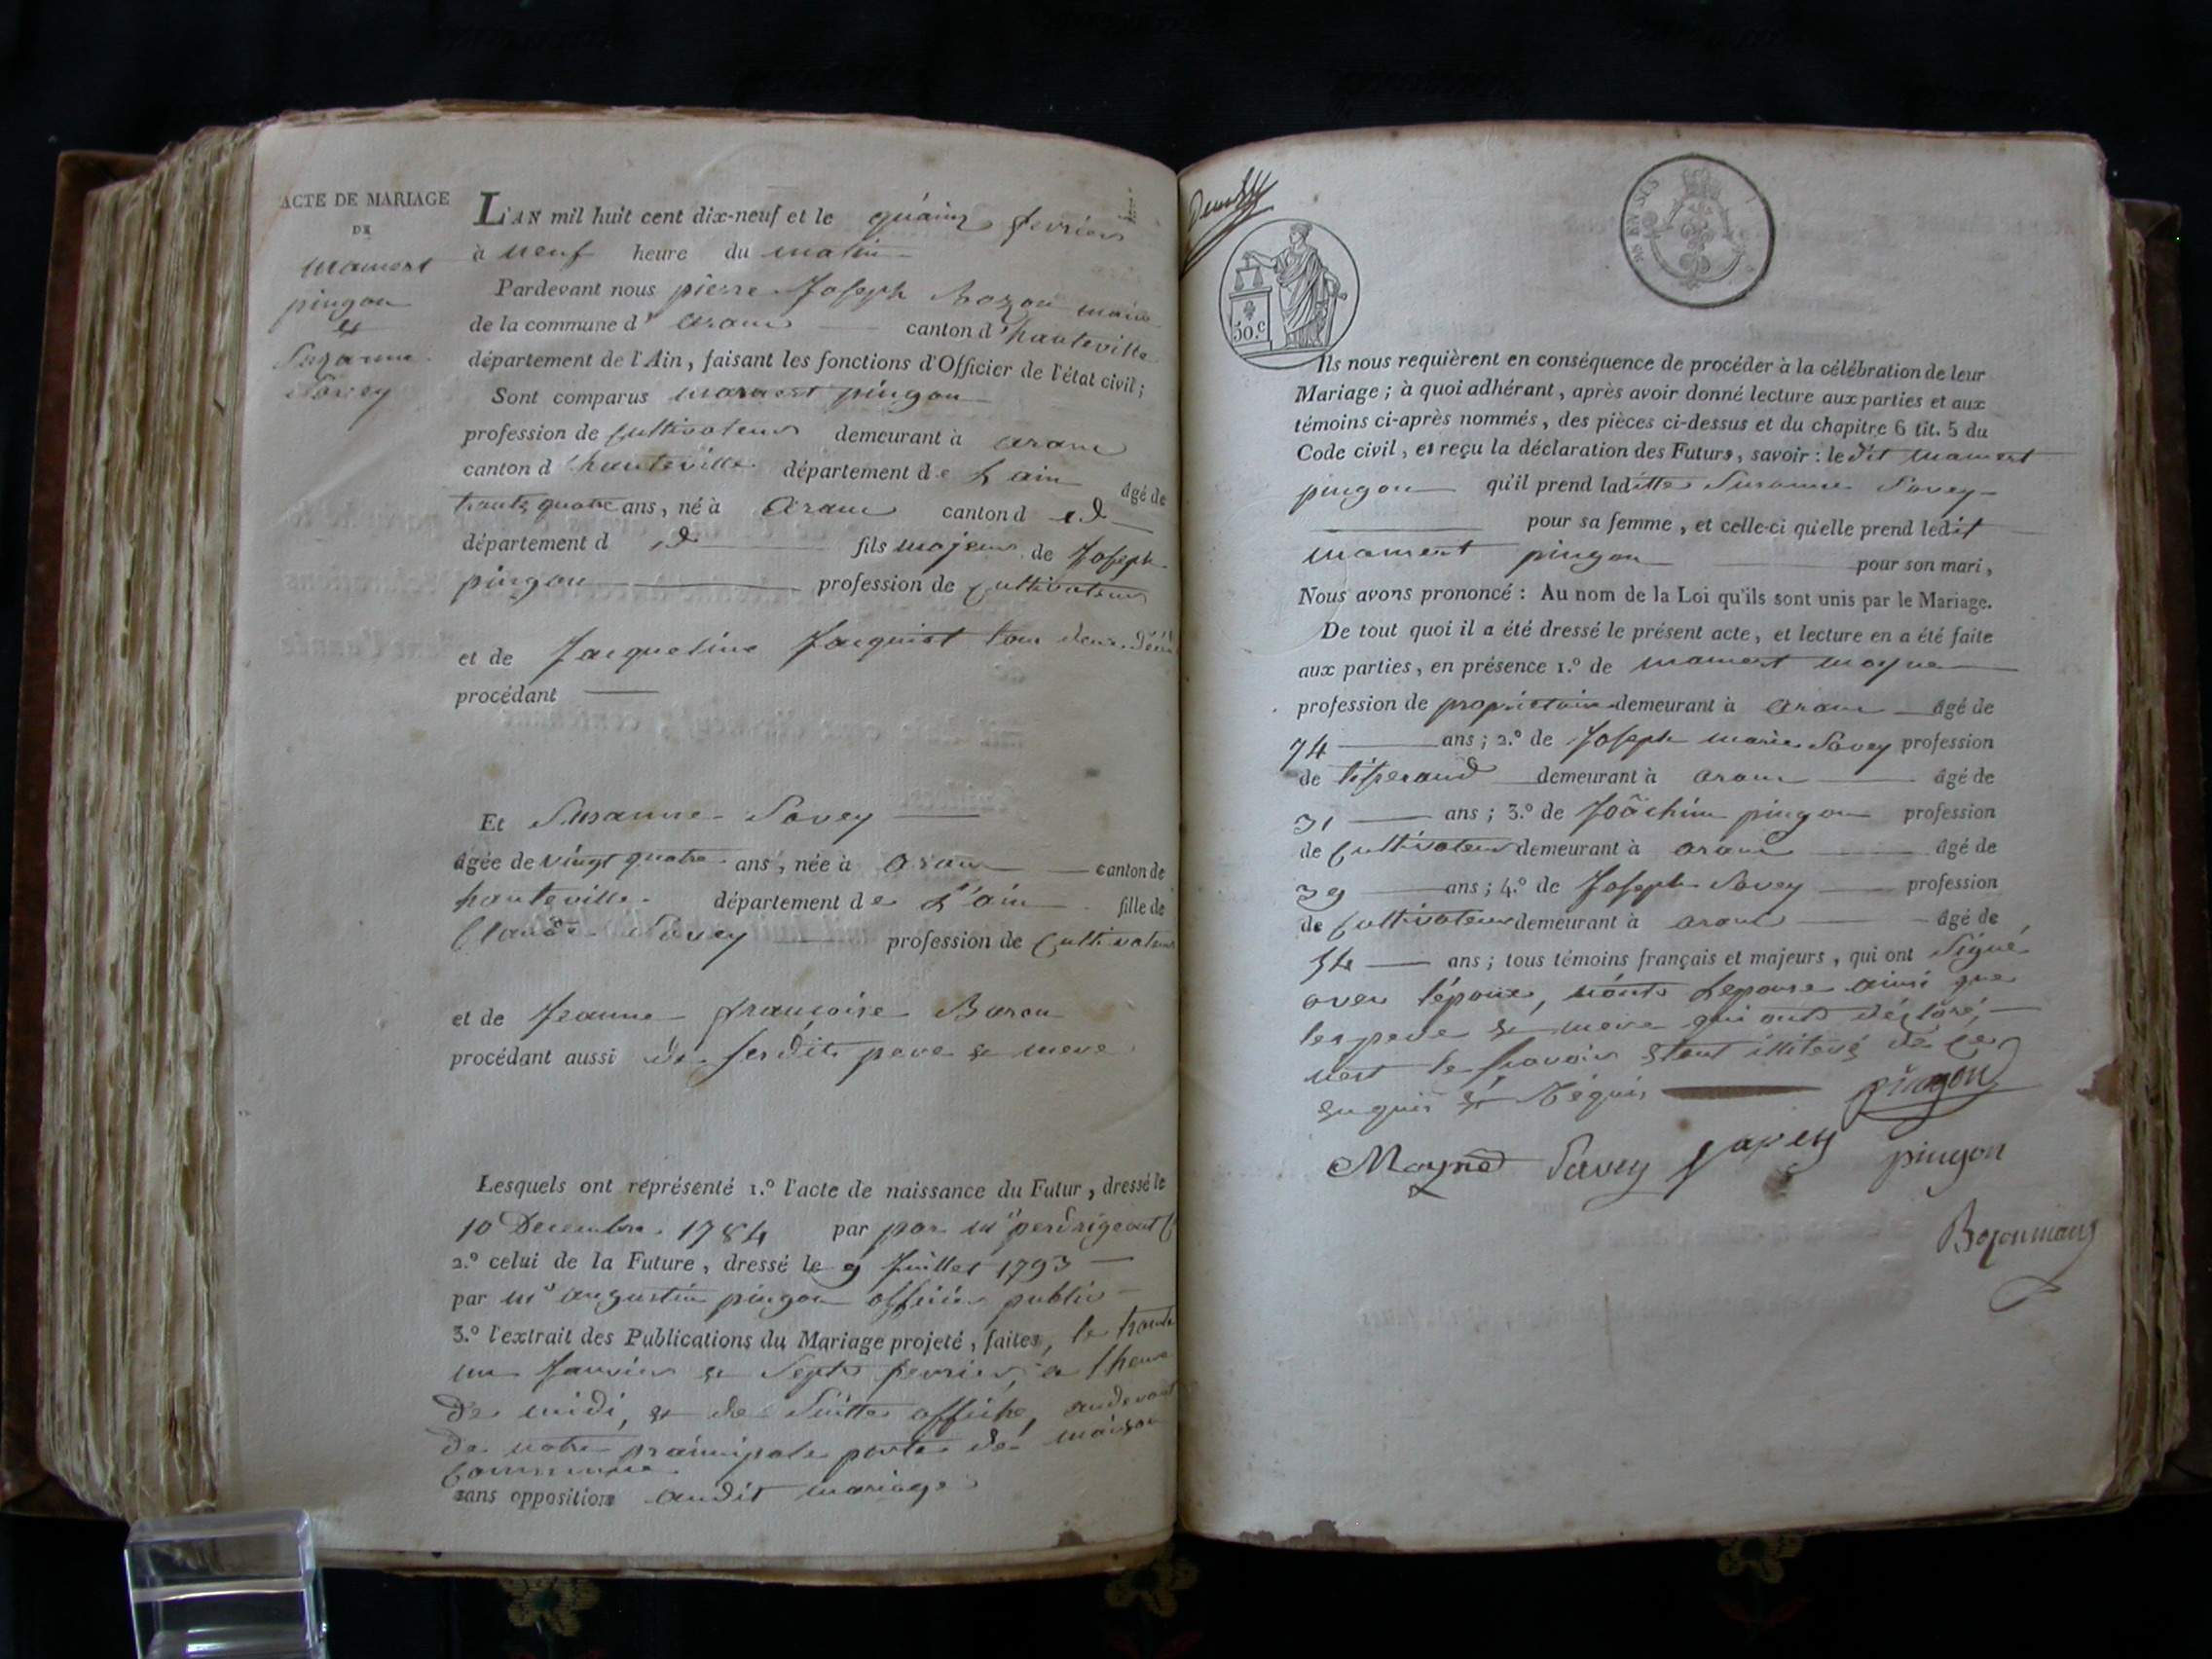 ACTE DE MARIAGE
DE
mamert
pingon
et
Suzanne
Savey
L'AN mil huit cent dix-neuf et le quainz fevrier
à neuf heure du matin
Pardevant nous pierre Joseph Bozon maire
de la commune d' aranc canton d' hauteville
département de l'Ain, faisant les fonctions d'Officier de l'état civil;
Sont comparus mamert pingon
profession de Cultivateur demeurant à aranc
canton d hauteville département de L'ain âgé de
trante quatre ans, né à aranc canton d id
département d id fils majeur de Joseph
pingon profession de Cultivateur
et de Jacqueline Jacquiot tous deux
procédant
Et Susanne Savey
âgée de vingt quatre ans, née à aranc canton de
hauteville département de L'ain fille de
Claude Savey profession de Cultivateur
et de Jeanne françoise Baron
procédant aussi de sesdits pere et mere
Lesquels ont représenté 1.º l'acte de naissance du Futur, dressé le
10 Decembre 1784 par par mr perdrigeont
2.º celui de la Future, dressé le 9 Juillet 1793
par mr augustin pingon officier public
3.º l'extrait des Publications du Mariage projeté, faites, le trante
un Janvier et Septe fevrier, a lheure
De midi, et de Suitte affiché, audevant
De notre praincipale porte de maison
Commune
sans opposition audit mariage
50.c
Ils nous requièrent en conséquence de procéder à la célébration de leur
Mariage; à quoi adhérant, après avoir donné lecture aux parties et aux
témoins ci-après nommés, des pièces ci-dessus et du chapitre 6 tit. 5 du
Code civil, et reçu la déclaration des Futurs, savoir: le dit mamert
pingon qu'il prend laditte Susanne Savey
pour sa femme, et celle-ci qu'elle prend ledit
mamert pingon pour son mari,
Nous avons prononcé: Au nom de la Loi qu'ils sont unis par le Mariage.
De tout quoi il a été dressé le présent acte, et lecture en a été faite
aux parties, en présence 1.º de mamert moyne
profession de propriétaire demeurant à aranc âgé de
74 ans; 2.º de Joseph marie Savey profession
de tiserand demeurant à aranc âgé de
31 ans; 3.º de Joächim pingon profession
de Cultivateur demeurant à aranc âgé de
39 ans; 4.º de Joseph Savey profession
de Cultivateur demeurant à aranc âgé de
34 ans; tous témoins français et majeurs, qui ont Signé
avec lépoux, nonts Lepouse ainsi que
les pere et mere qui onts déclaré,
nest le savoir étant illiteré de ce
enquis et Réquis pingon
Moyne Savey Savey pingon
Bozon maire